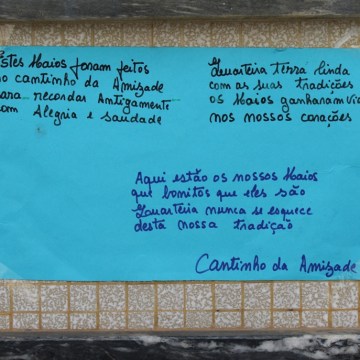 Estes Maios foram feitos
no cantinho da Amizade
para recordar Antigamente
com Alegria e saudade
Quarteira terra linda
com as suas tradições
os Maios ganharam vida
nos nossos corações
Aqui estão os nossos Maios
que bonitos que eles são
Quarteria nunca se esquece
desta nossa tradição
Cantinho da Amizade